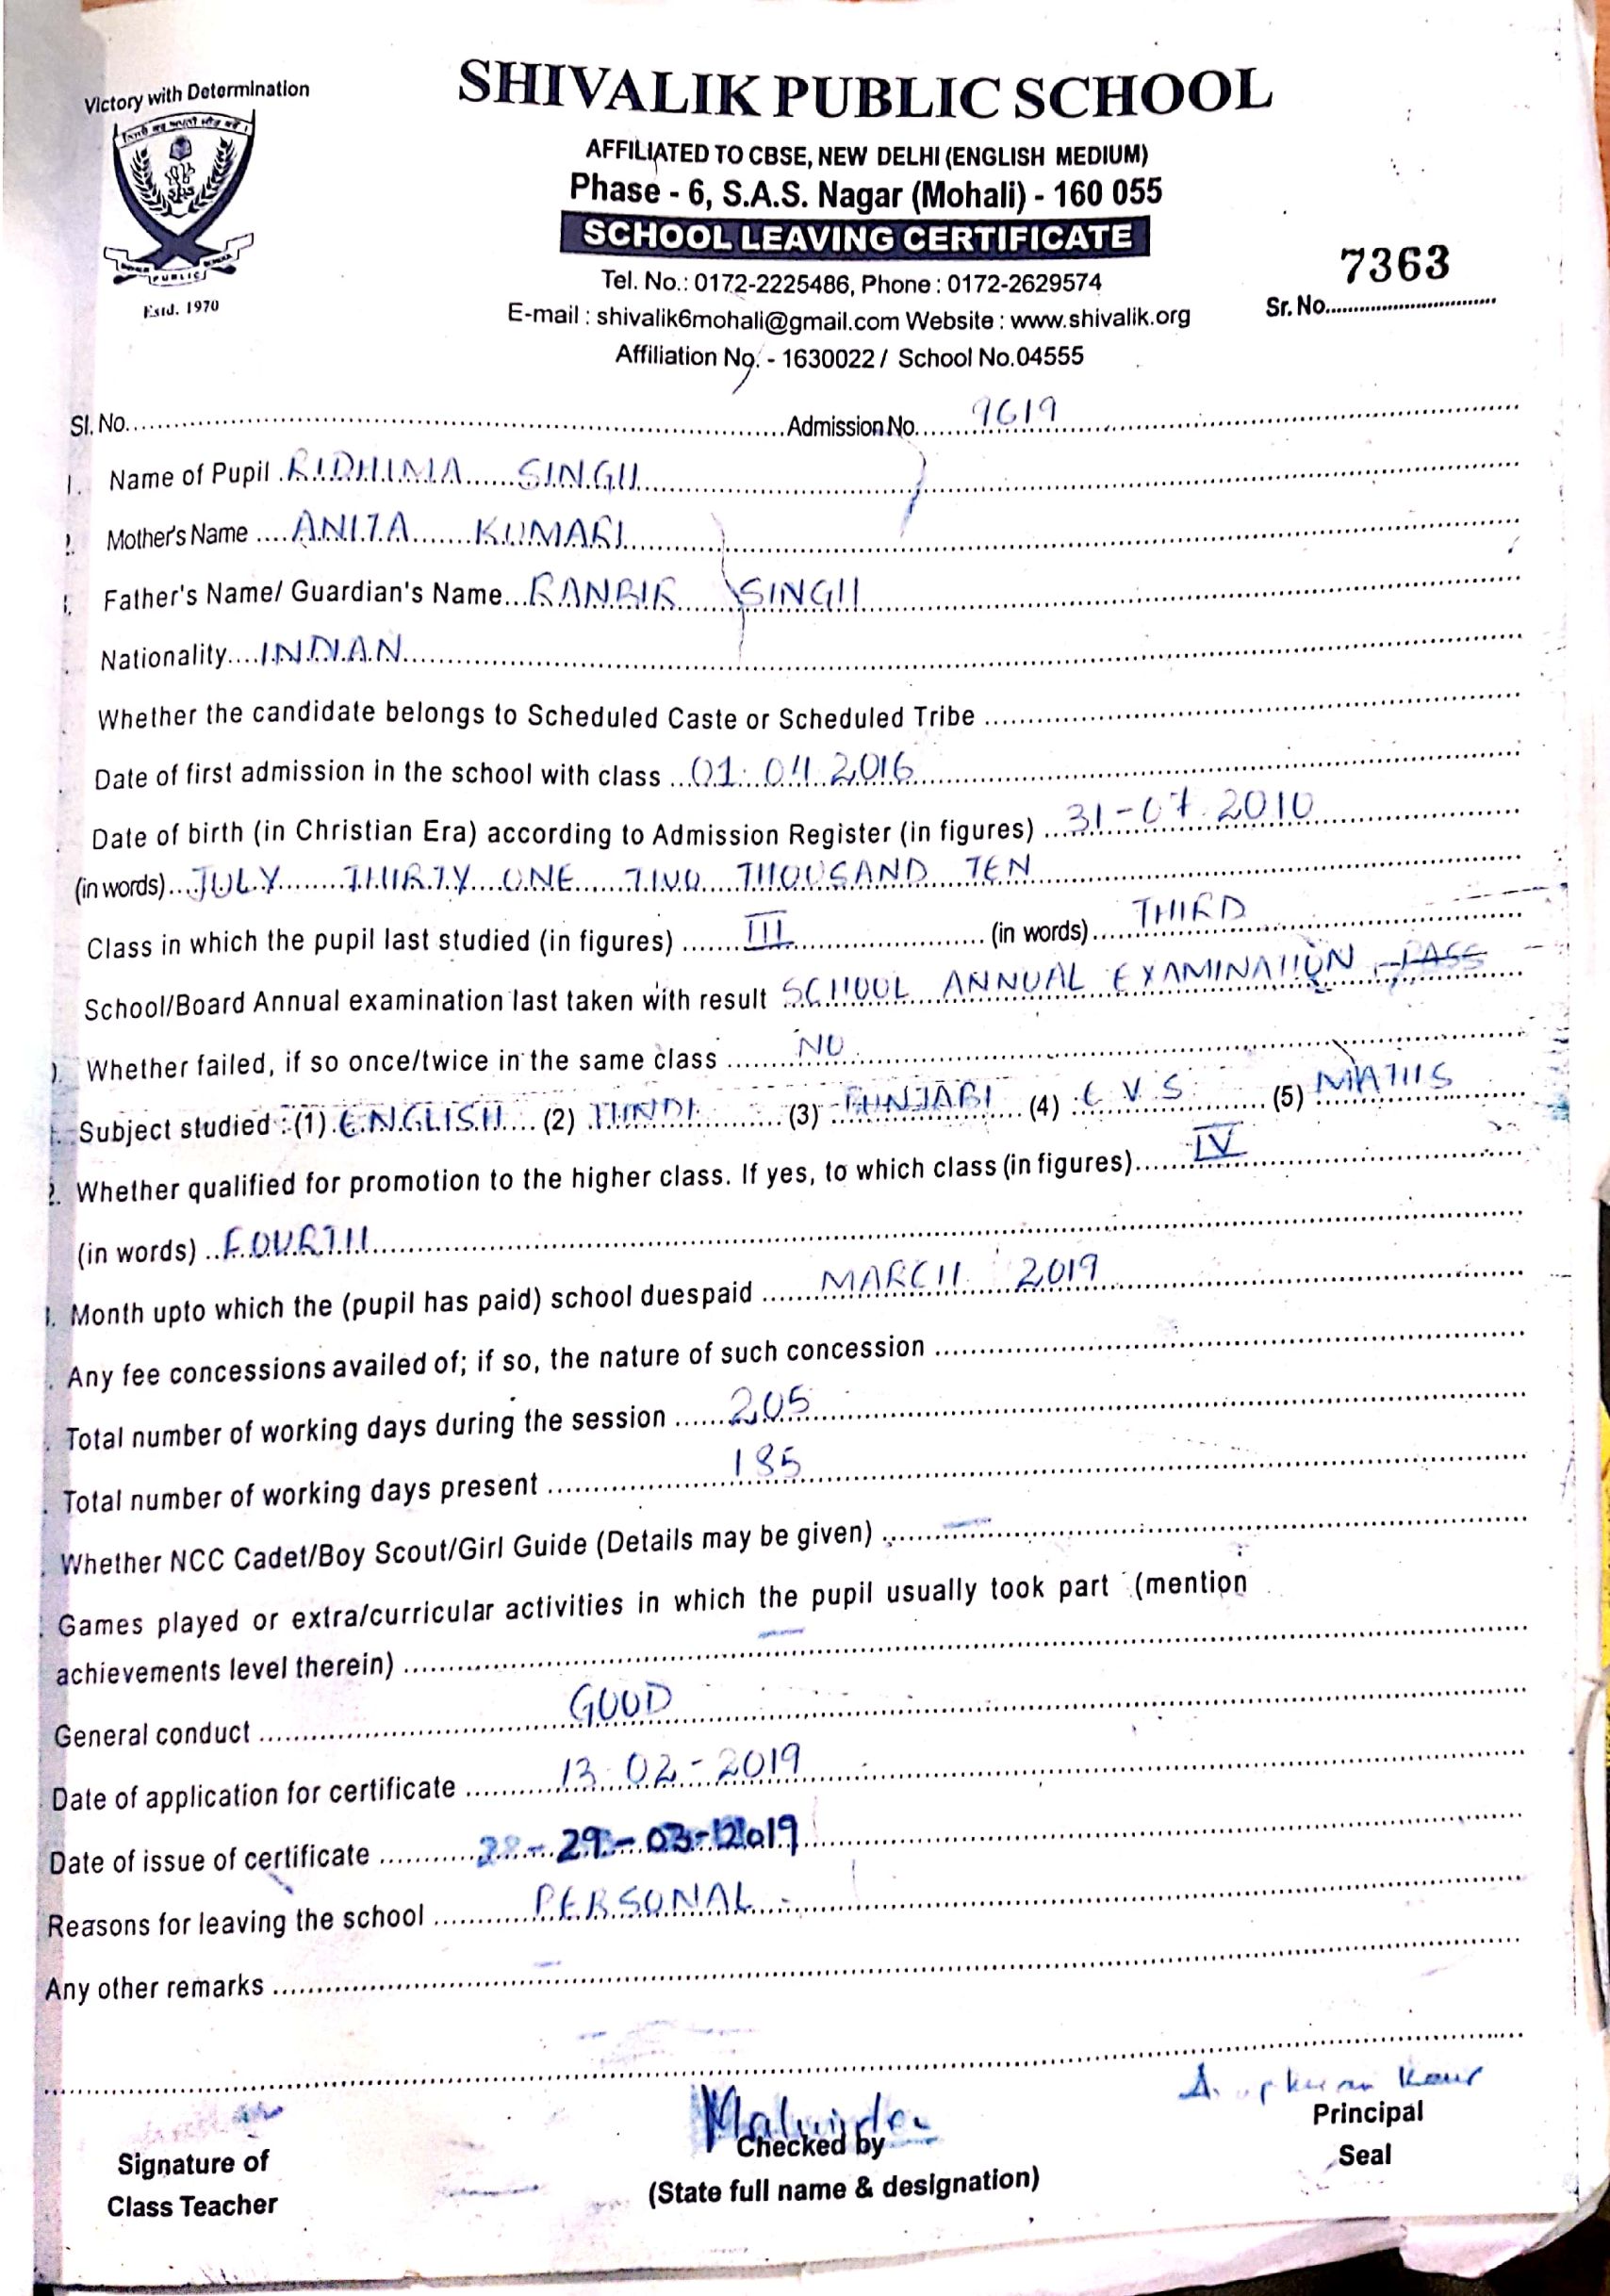 Victory with Determination
SHIVALIK PUBLIC SCHOOL
AFFILIATED TO CBSE, NEW DELHI (ENGLISH MEDIUM)
Phase - 6, S.A.S. Nagar (Mohali) - 160 055
SCHOOL LEAVING CERTIFICATE
Tel. No.: 0172-2225486, Phone : 0172-2629574
E-mail : shivalik6mohali@gmail.com Website : www.shivalik.org
Affiliation No. - 1630022 / School No.04555
PUBLIC
Estd. 1970
7363
Sr. No.
Sl. No. Admission No. 9619
1. Name of Pupil RIDHIMA SINGH
Mother's Name ANITA KUMARI
Father's Name/ Guardian's Name RANBIR SINGH
Nationality INDIAN
Whether the candidate belongs to Scheduled Caste or Scheduled Tribe
Date of first admission in the school with class 01.04.2016
Date of birth (in Christian Era) according to Admission Register (in figures) 31-07.2010
(in words) JULY THIRTY ONE TWO THOUSAND TEN
Class in which the pupil last studied (in figures) III (in words) THIRD
School/Board Annual examination last taken with result SCHOOL ANNUAL EXAMINATION - PASS
Whether failed, if so once/twice in the same class NO
Subject studied : (1) ENGLISH (2) HINDI (3) PUNJABI (4) E.V.S (5) MATHS
Whether qualified for promotion to the higher class. If yes, to which class (in figures) IV
(in words) FOURTH
Month upto which the (pupil has paid) school duespaid MARCH 2019
Any fee concessions availed of; if so, the nature of such concession
Total number of working days during the session 205
Total number of working days present 185
Whether NCC Cadet/Boy Scout/Girl Guide (Details may be given) -
Games played or extra/curricular activities in which the pupil usually took part (mention
achievements level therein) -
General conduct GOOD
Date of application for certificate 13-02-2019
Date of issue of certificate 29-03-2019
Reasons for leaving the school PERSONAL
Any other remarks -
Malwinder
Kaur
Principal
Checked by
Seal
Signature of
(State full name & designation)
Class Teacher